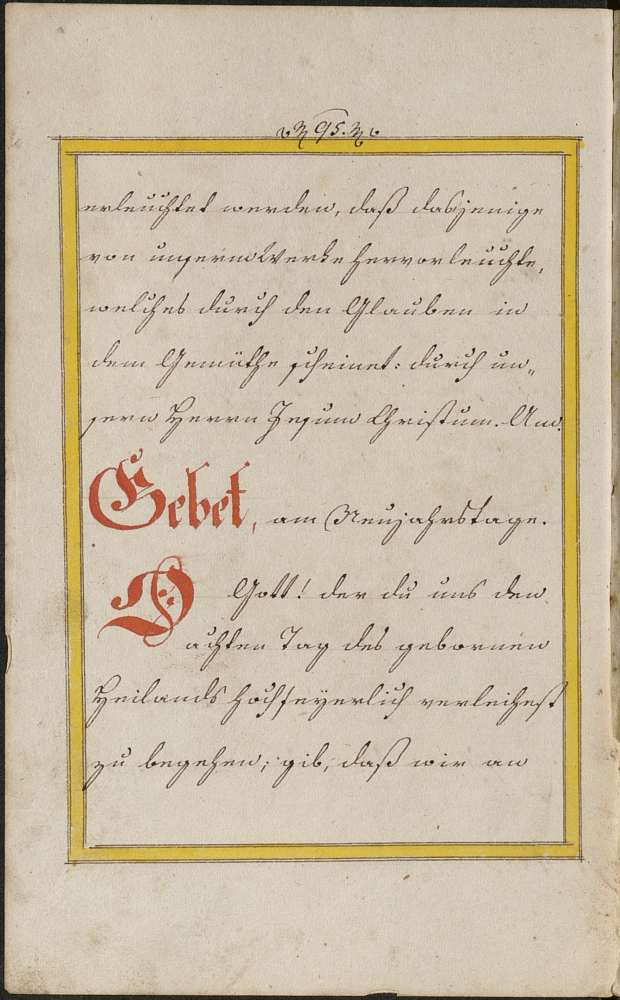 95.
erleuchtet werden, daß dasjenige
von unserm Werke hervorleuchte,
welches durch den Glauben in
dem Gemüthe scheinet: durch un„
sern Herrn Jesum Christum. Am.
Gebet, am Neujahrstage.
O Gott! der du uns den
achten Tag des gebornen
Heilands hochfeyerlich verleihest
zu begehen; gib, daß wir an